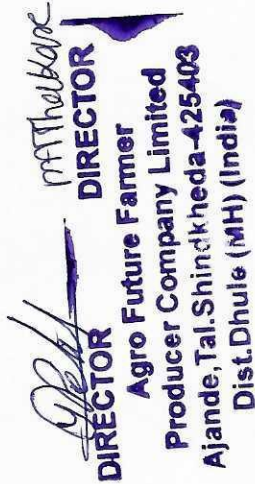 DIRECTOR DIRECTOR
Agro Future Farmer
Producer Company Limited
Ajande,Tal.Shindkheda-425403
Dist.Dhule (MH) (India)